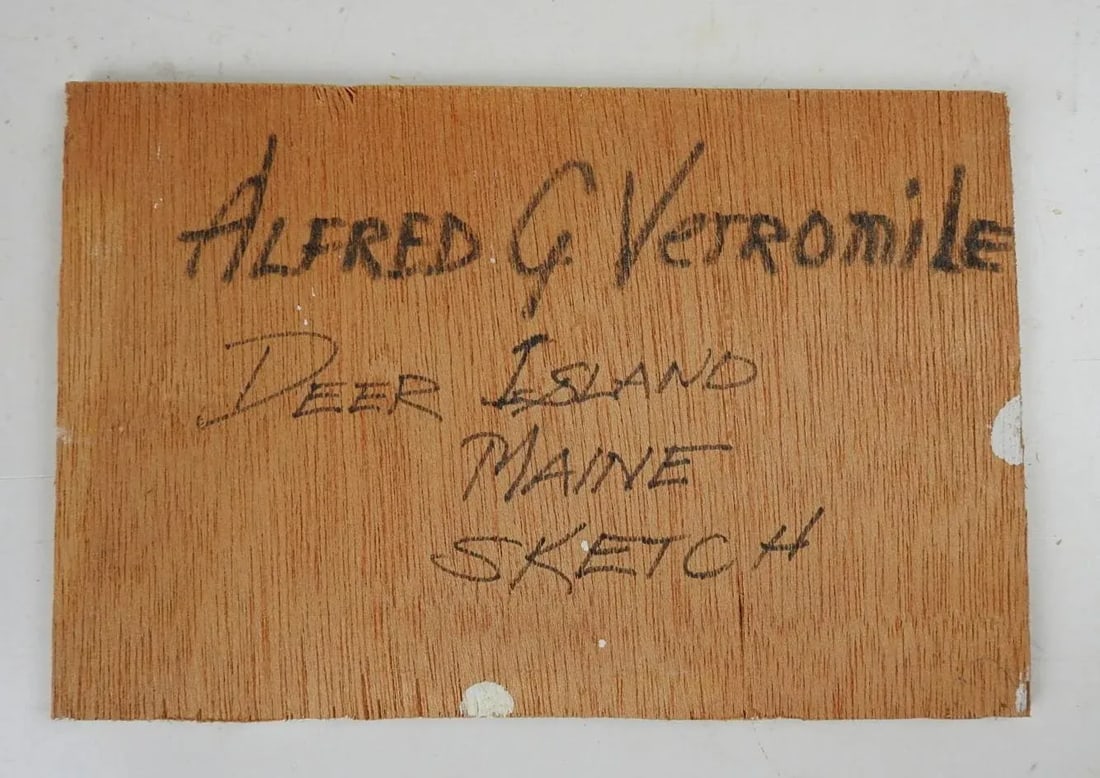 ALFRED G VETROMILE
DEER ISLAND
MAINE
SKETCH